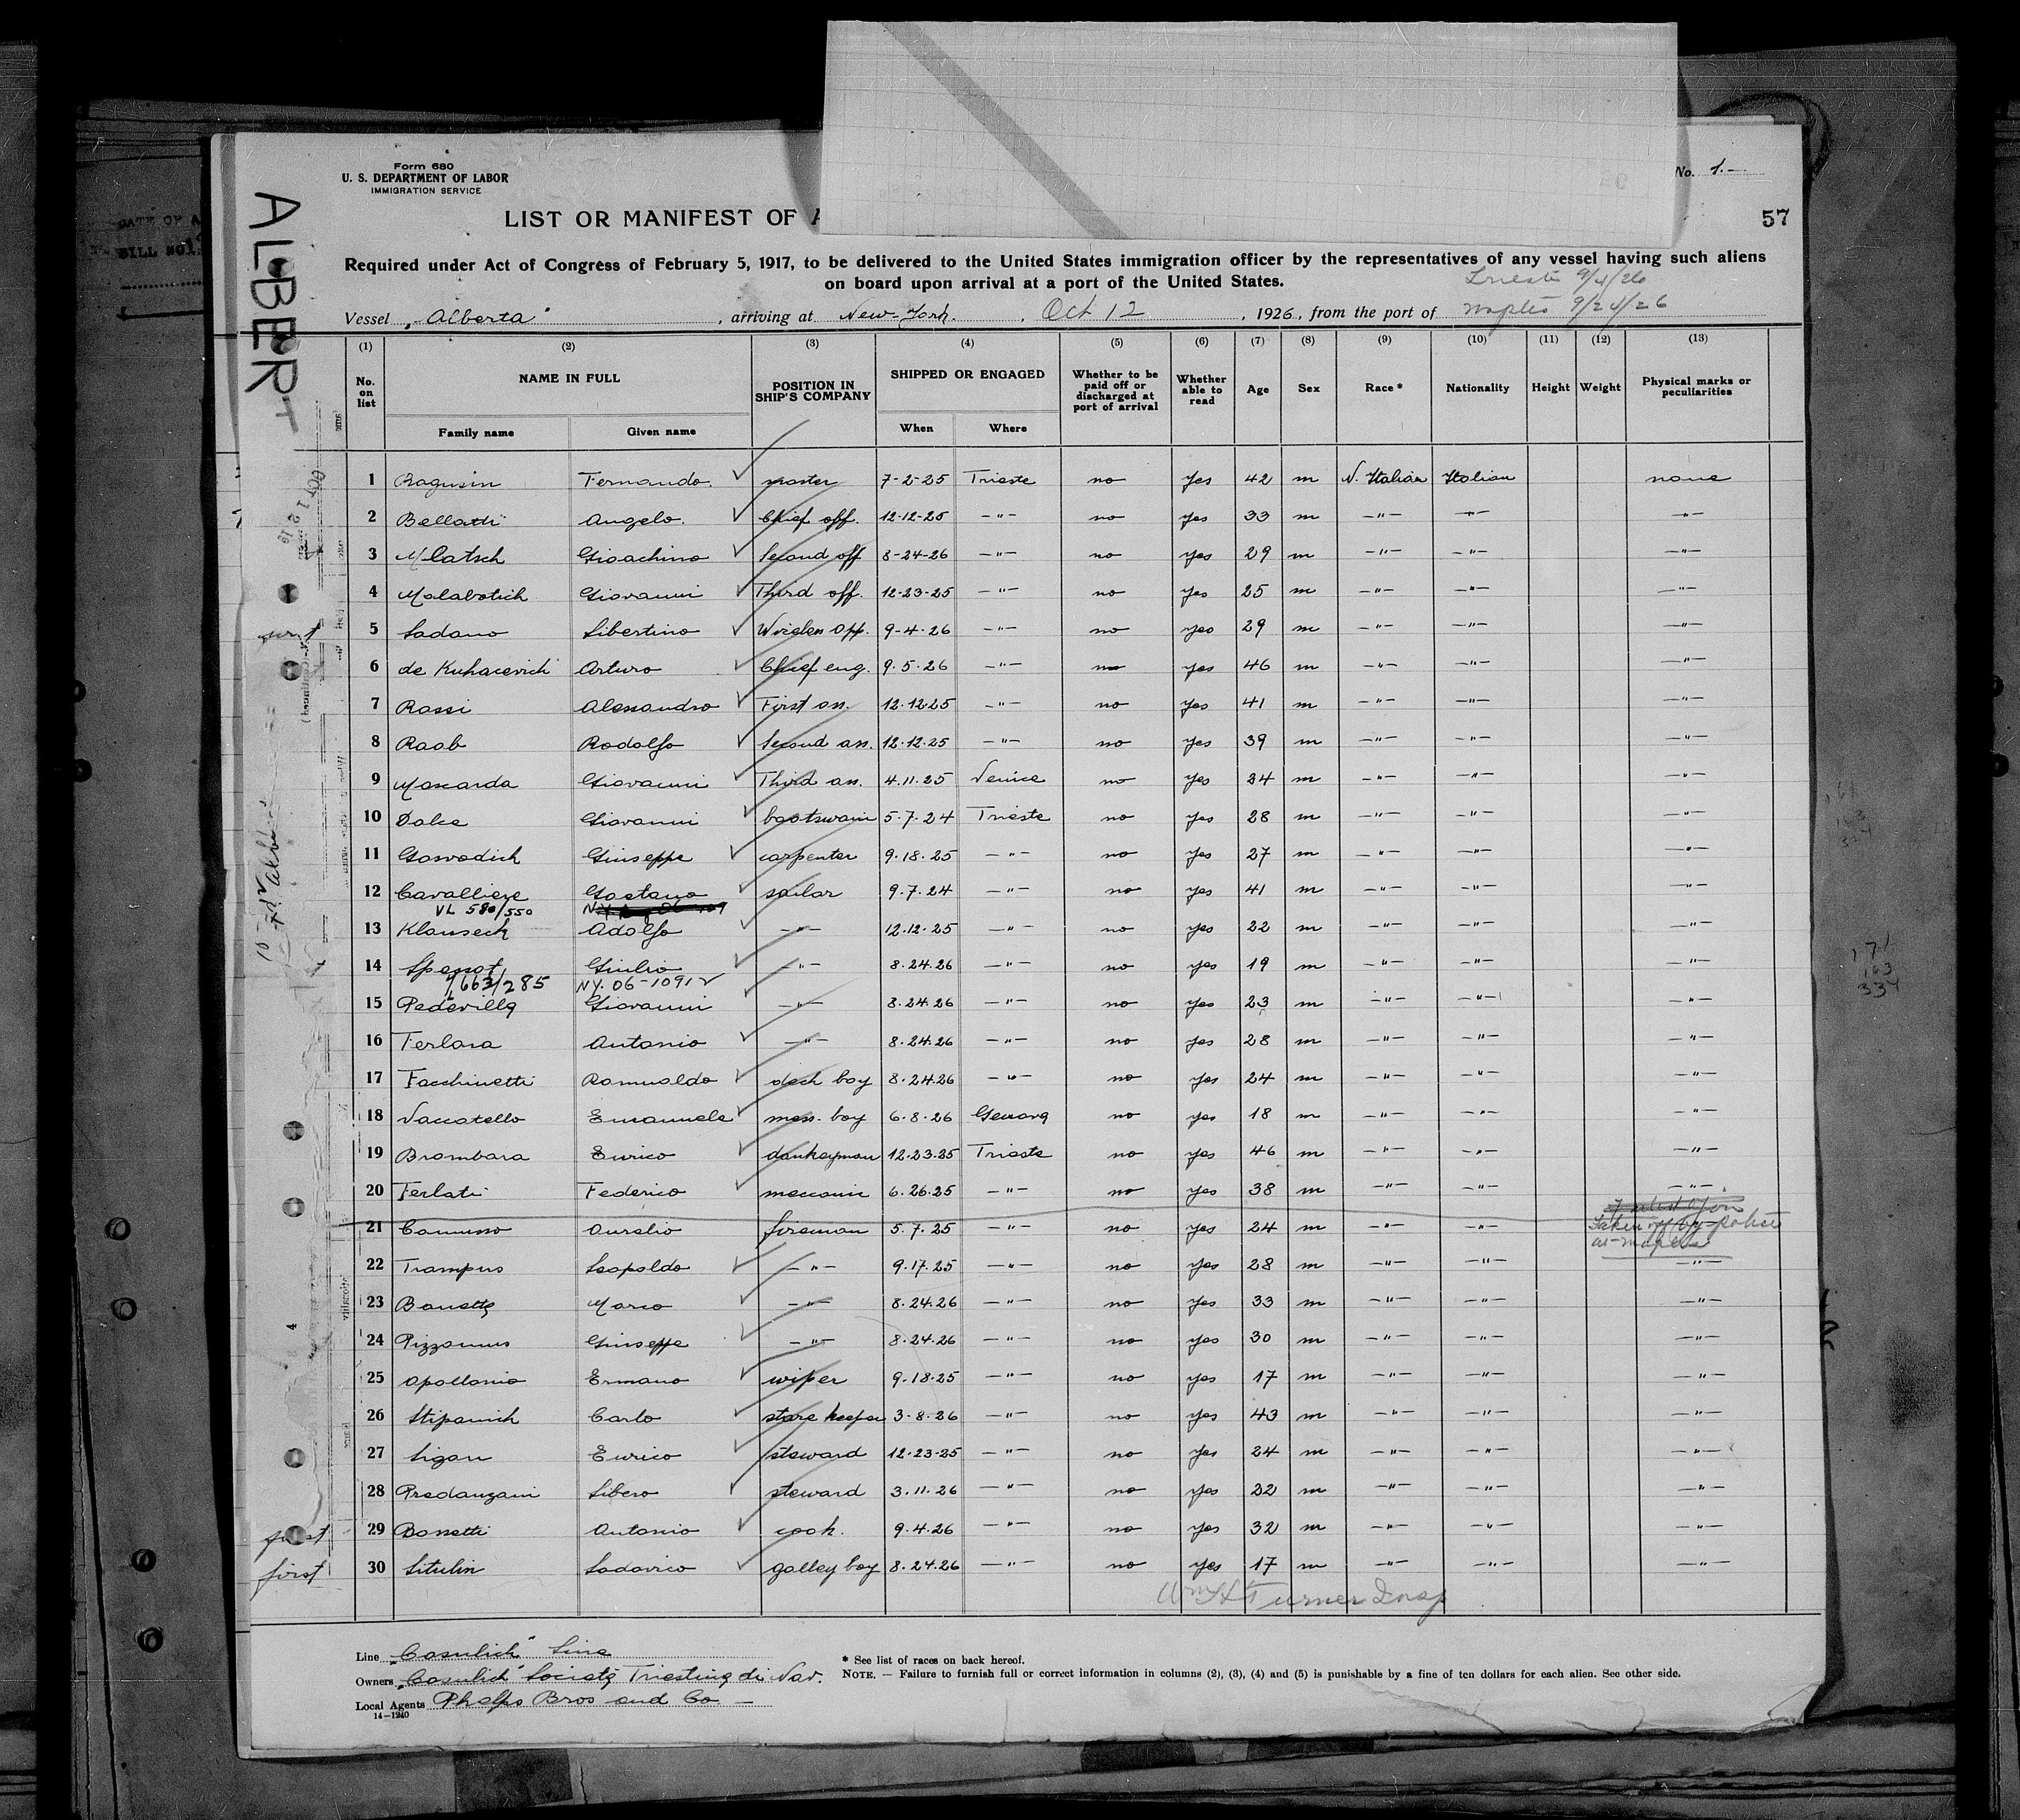 Form 680
U. S. DEPARTMENT OF LABOR
IMMIGRATION SERVICE
No. 1.—
LIST OR MANIFEST OF A
57
ALBERT
Required under Act of Congress of February 5, 1917, to be delivered to the United States immigration officer by the representatives of any vessel having such aliens
on board upon arrival at a port of the United States.
Trieste 9/4/26
Vessel „Alberta“, arriving at New-York., Oct 12, 1926, from the port of Naples 9/24/26
(1) (2) (3) (4) (5) (6) (7) (8) (9) (10) (11) (12) (13)
No. on list NAME IN FULL POSITION IN SHIP'S COMPANY SHIPPED OR ENGAGED Whether to be paid off or discharged at port of arrival Whether able to read Age Sex Race* Nationality Height Weight Physical marks or peculiarities
Family name Given name When Where
1 Ragusin Fernando. master 7-2-25 Trieste no yes 42 m N. Italian Italian none
2 Bellatti Angelo. Chief off. 12-12-25 —"— no yes 33 m —"— —"— —"—
3 Mlatsch Gioachino Second off 8-24-26 —"— no yes 29 m —"— —"— —"—
4 Malabotich Giovanni Third off. 12-23-25 —"— no yes 25 m —"— —"— —"—
first 5 Sadano Libertino Wireless opp. 9-4-26 —"— no yes 29 m —"— —"— —"—
6 de Kuhacevich Arturo Chief eng. 9.5.26 —"— no yes 46 m —"— —"— —"—
7 Rossi Alessandro First ass. 12.12.25 —"— no yes 41 m —"— —"— —"—
8 Raab Rodolfo Second ass. 12.12.25 —"— no yes 39 m —"— —"— —"—
9 Moscarda Giovanni Third ass. 4.11.25 Venice no yes 24 m —"— —"— —"—
10 Dolce Giovanni bootswain 5.7.24 Trieste no yes 28 m —"— —"— —"—
11 Gosvodich Giuseppe carpenter 9.18.25 —"— no yes 27 m —"— —"— —"—
12 Cavalliere Gaetano sailor 9.7.24 —"— no yes 41 m —"— —"— —"—
VL 580/550
13 Klausech Adolfo —"— 12.12.25 —"— no yes 22 m —"— —"— —"—
14 Spessot Giulio —"— 8.24.26 —"— no yes 19 m —"— —"— —"—
663/285 NY. 06-1091
15 Pedevilla Giovanni —"— 8.24.26 —"— no yes 23 m —"— —"— —"—
16 Terlara Antonio —"— 8.24.26 —"— no yes 28 m —"— —"— —"—
17 Facchinetti Romualdo deck boy 8.24.26 —"— no yes 24 m —"— —"— —"—
18 Vaccatello Emanuele mess. boy 6.8.26 Genova no yes 18 m —"— —"— —"—
19 Brombara Enrico donkeyman 12.23.25 Trieste no yes 46 m —"— —"— —"—
20 Ferlati Federico meccanic 6.26.25 —"— no yes 38 m —"— —"— —"—
21 Camusso Aurelio fireman 5.7.25 —"— no yes 24 m —"— —"— Taken off by police
at Naples
22 Trampus Leopoldo —"— 9.17.25 —"— no yes 28 m —"— —"— —"—
23 Bonetta Marco —"— 8.24.26 —"— no yes 33 m —"— —"— —"—
24 Pizzamus Giuseppe —"— 8.24.26 —"— no yes 30 m —"— —"— —"—
25 Apollonio Ermano wiper 9.18.25 —"— no yes 17 m —"— —"— —"—
26 Stipanich Carlo store keeper 3.8.26 —"— no yes 43 m —"— —"— —"—
27 Sigon Enrico steward 12.23-25 —"— no yes 24 m —"— —"— —"—
28 Predanzani Libero steward 3.11.26 —"— no yes 22 m —"— —"— —"—
first 29 Bonetti Antonio cook. 9.4.26 —"— no yes 32 m —"— —"— —"—
first 30 Situlin Lodovico galley boy 8.24.26 —"— no yes 17 m —"— —"— —"—
Wm H Turner Insp
Line „Cosulich“ Line
Owners „Cosulich“ Società Triestina di Nav.
Local Agents Phelps Bros and Co —
14—1240
* See list of races on back hereof.
NOTE. — Failure to furnish full or correct information in columns (2), (3), (4) and (5) is punishable by a fine of ten dollars for each alien. See other side.